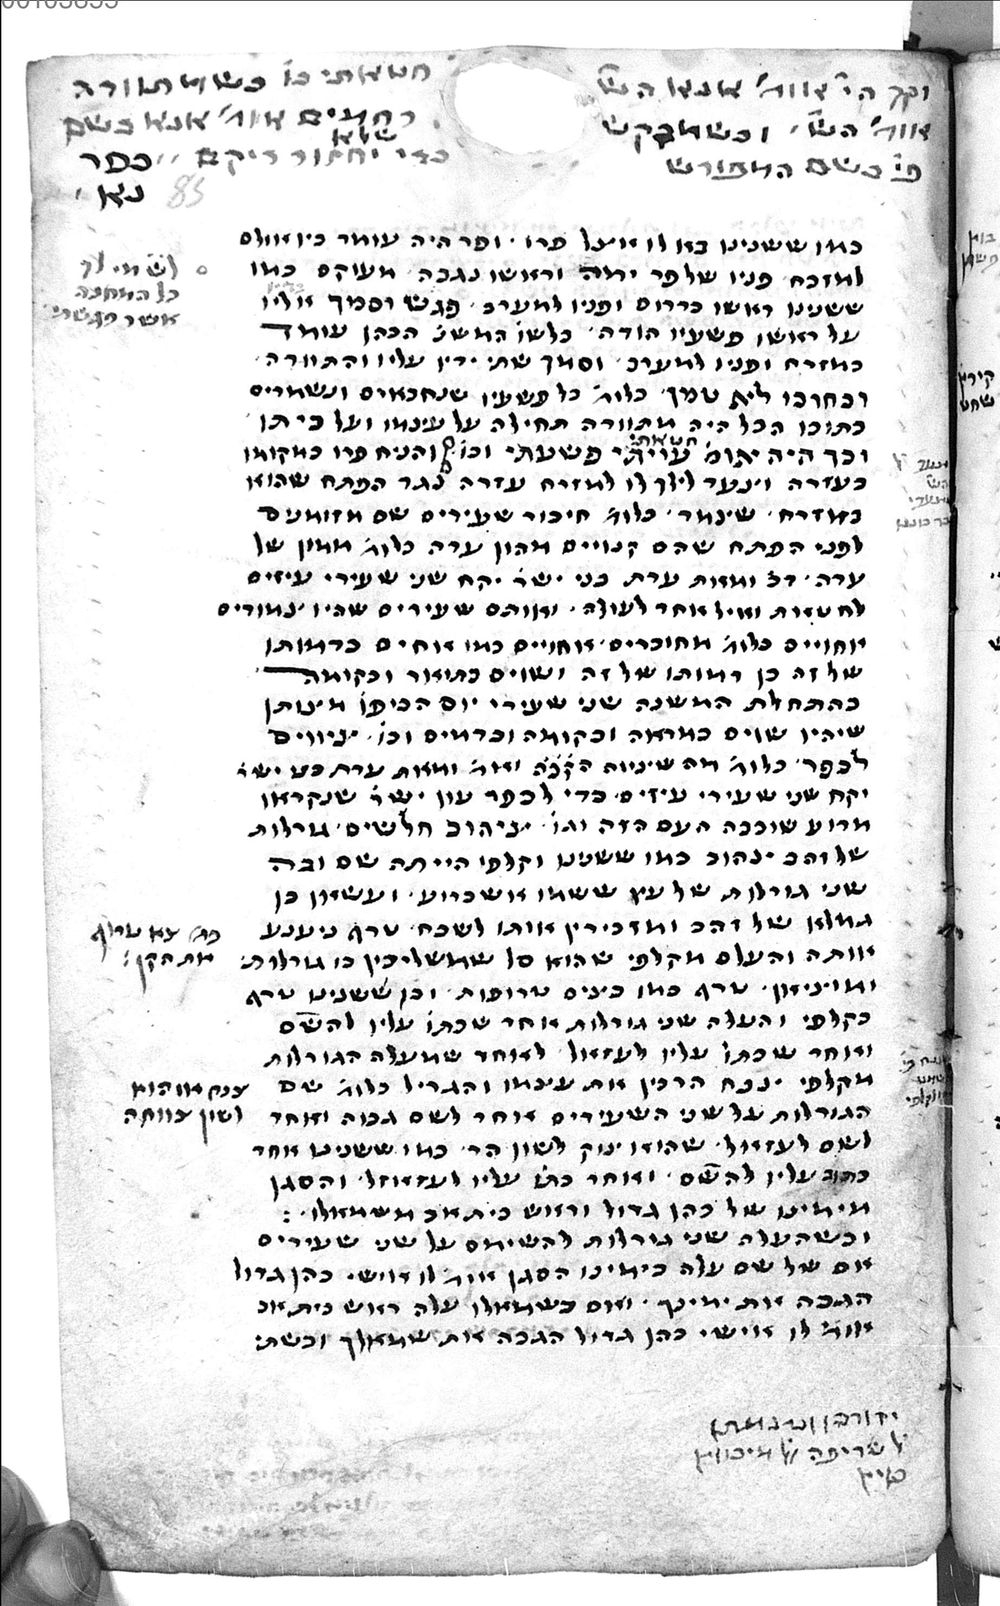 וכך הי׳ אומ׳ אנא הש׳ חטאתי כו׳ כשמתודה
אומ׳ הש׳ וכשמבקש רחמים אומ׳ אנא בשם
פי׳ בשם המפורש כדי שלא יחזור ריקם כפר
נא
כמו ששנינו בא לו אצל פרו ופר היה עומד בין אולם
למזבח פניו של פר ימה וראשו נגבה מעוקם כמו
ששנינו ראשו לדרום ופניו למערב פגש וסמך אליו
על ראשו פשעיו הודה כלשו׳ המשנ׳ הכהן עומד
במזרח ופניו למערב וסמך שתי ידיו עליו והתוודה
ובחובו לא טמן כלומ׳ כל פשעיו שנחבאים ונשמרים
בתוכו הכל היה מתוודה תחילה על עצמו ועל ביתו
וכך היה אומ׳ עויתי פשעתי חטאתי וכו׳ והניח פרו במקומו
בעזרה וצעד לילך לו למזרח עזרה נגד הפתח שהוא
במזרח שיצמד כלומ׳ חיבור שעירים שם מזומנים
לפני הפתח שהם קנויים מהון עדה כלומ׳ ממון של
עדה דכ׳ ומאת עדת בני ישר׳ יקח שני שעירי עיזים
לחטאת ואיל אחד לעולה ואותם שעירים שהיו צמודים
אחויים כלומ׳ מחוברים אחויים כמו אחים בדמותו
של זה כן דמותו של זה ושוים בתואר ובקומה
כהתחלת המשנה שני שעירי יום הכיפו׳ מצותן
שיהיו שוים במראה ובקומה ובדמים וכו׳
לכפר כלומ׳ מה שציוה הק׳ ואמ׳ ומאת עדת בני ישר׳
יקח שני שעירי עיזים כדי לכפר עון ישר׳ שנקראו
מדוע שובבה העם הזה וגו׳ צהוב חלשים גורלות
של זהב צהוב כמו ששנינו וקלפי הייתה שם ובה
שני גורלות של עץ ששמו אשכרוע ועשאן בן
גמלא של זהב ומזכירין אותו לשבח טרף ניענע
אותה והעלם מקלפי שהוא סל שמשליכין בו גורלות
ומוציאן טרף כמו ביצים טרופות וכן ששנינו טרף
בקלפי והעלה שני גורלות אחד שכתו׳ עליו להשם
ואחד שכתו׳ עליו לעזאזל לאחר שמעלה הגורלות
מקלפי צנח הרכין את עצמו והגריל כלומ׳ שם
הגורלות על שני השעירים אחד לשם גבוה ואחד
לשם לעזאזל שהוא צוק לשון הר כמו ששנינו אחד
כתוב עליו להשם ואחד כתו׳ עליו לעזאזל והסגן
מימינו של כהן גדול וראש בית אב משמאלו:
וכשהעלה שני גורלות להשימם על שני שעירים
אם של שם עלה בימינו הסגן אומ׳ לו אישי כהן גדול
הגבה את ימינך ואם בשמאלו עלה ראש בית אב
אומ׳ לו אישי כהן גדול הגבה את שמאלך וכשת׳
כל המחנה
צא טרוף
את הקן:
צנח או הוא
לשון צווחה
לשריפה